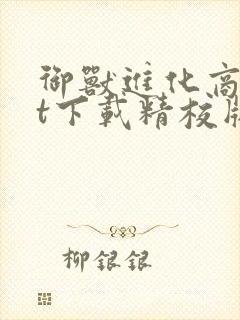 御獸進化商
t下載精校版
柳銀銀